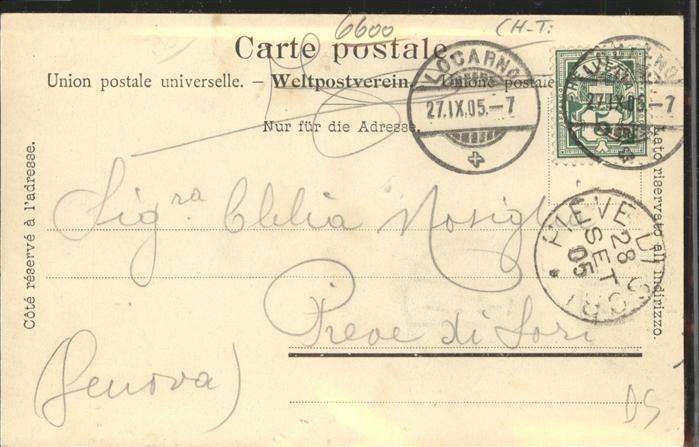 6600
(CH-T:
Carte postale.
Union postale universelle. — Weltpostverein. — Unione postale
Nur für die Adresse.
LOCARNO
27.IX.05.–7
27.IX.05.–7
Côté réservé à l'adresse.
Lato riservato all'indirizzo.
Sig.ra Clelia
PIEVE DI SORI
28 SET 05
Pieve di Sori
(Genova)
DS